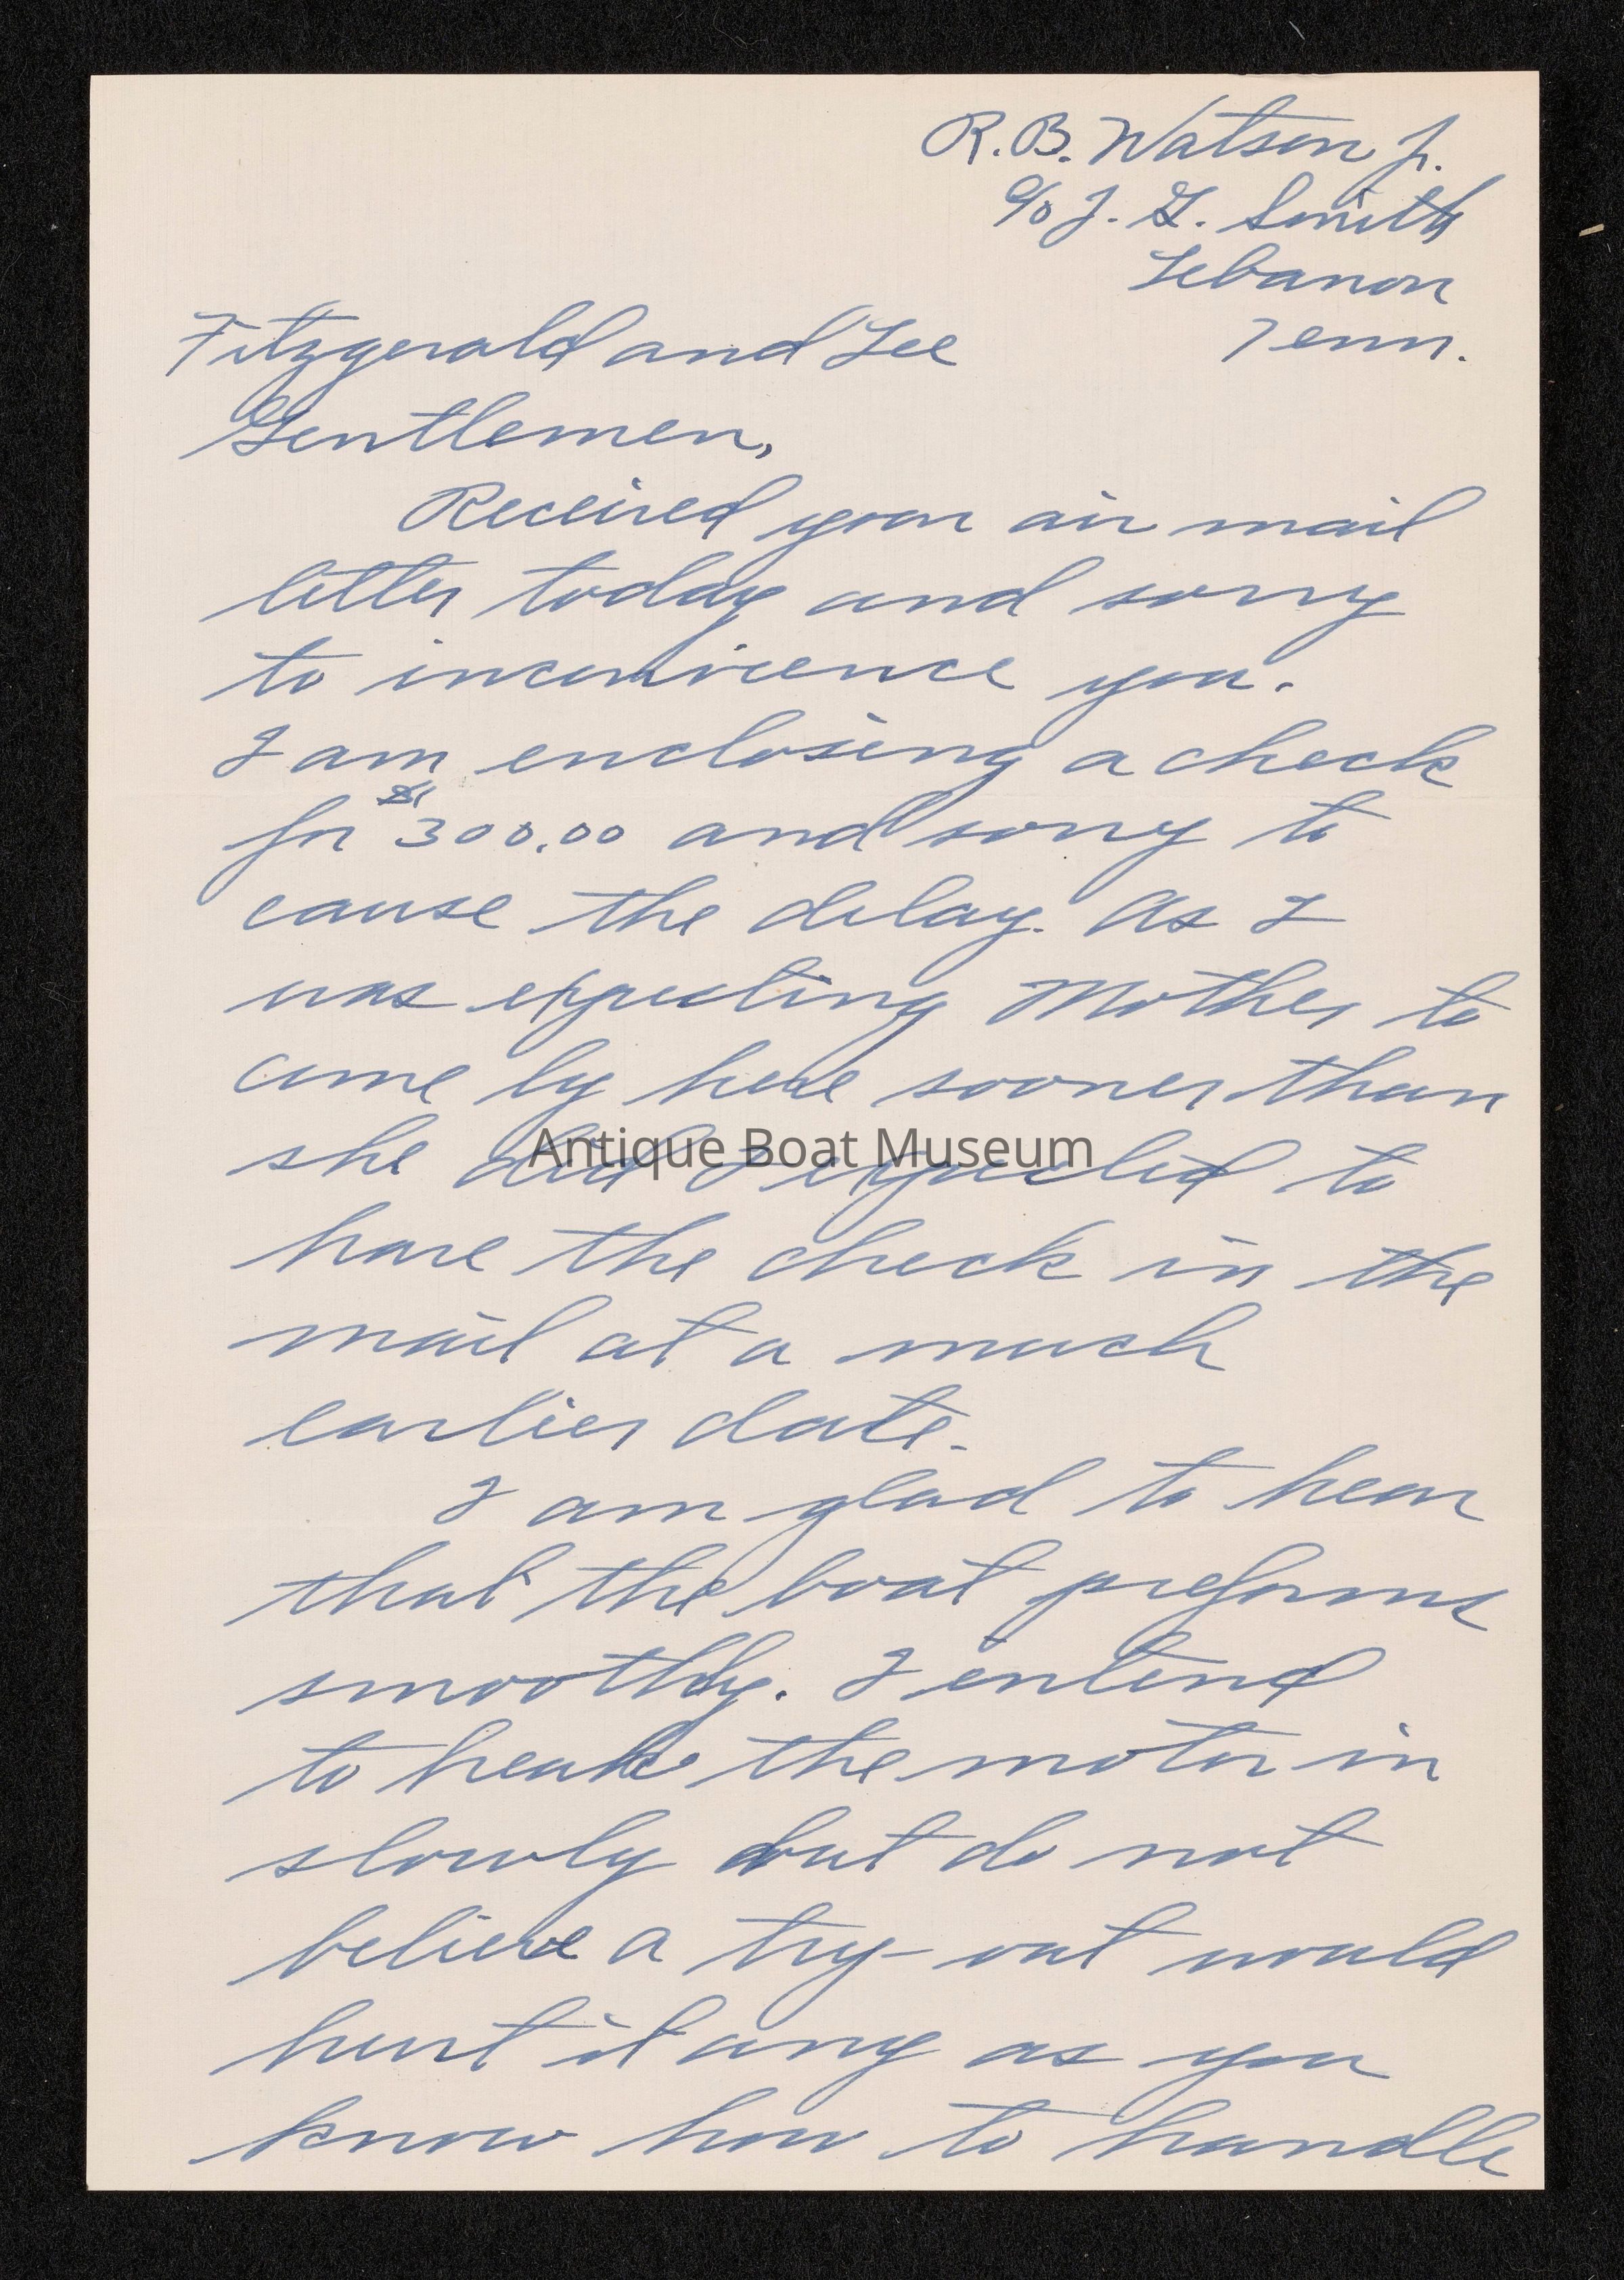 R.B. Watson Jr.
c/o J. G. Smith
Lebanon
Tenn.
Fitzgerald and Lee
Gentlemen,
Received your air mail
letter today and sorry
to inconvience you.
I am enclosing a check
for $300.00 and sorry to
cause the delay. As I
was expecting Mother to
come by here sooner than
she did I expected to
have the check in the
mail at a much
earlier date.
I am glad to hear
that the boat preforms
smoothly. I entend
to break the motor in
slowly but do not
believe a try-out would
hurt it any as you
know how to handle
Antique Boat Museum